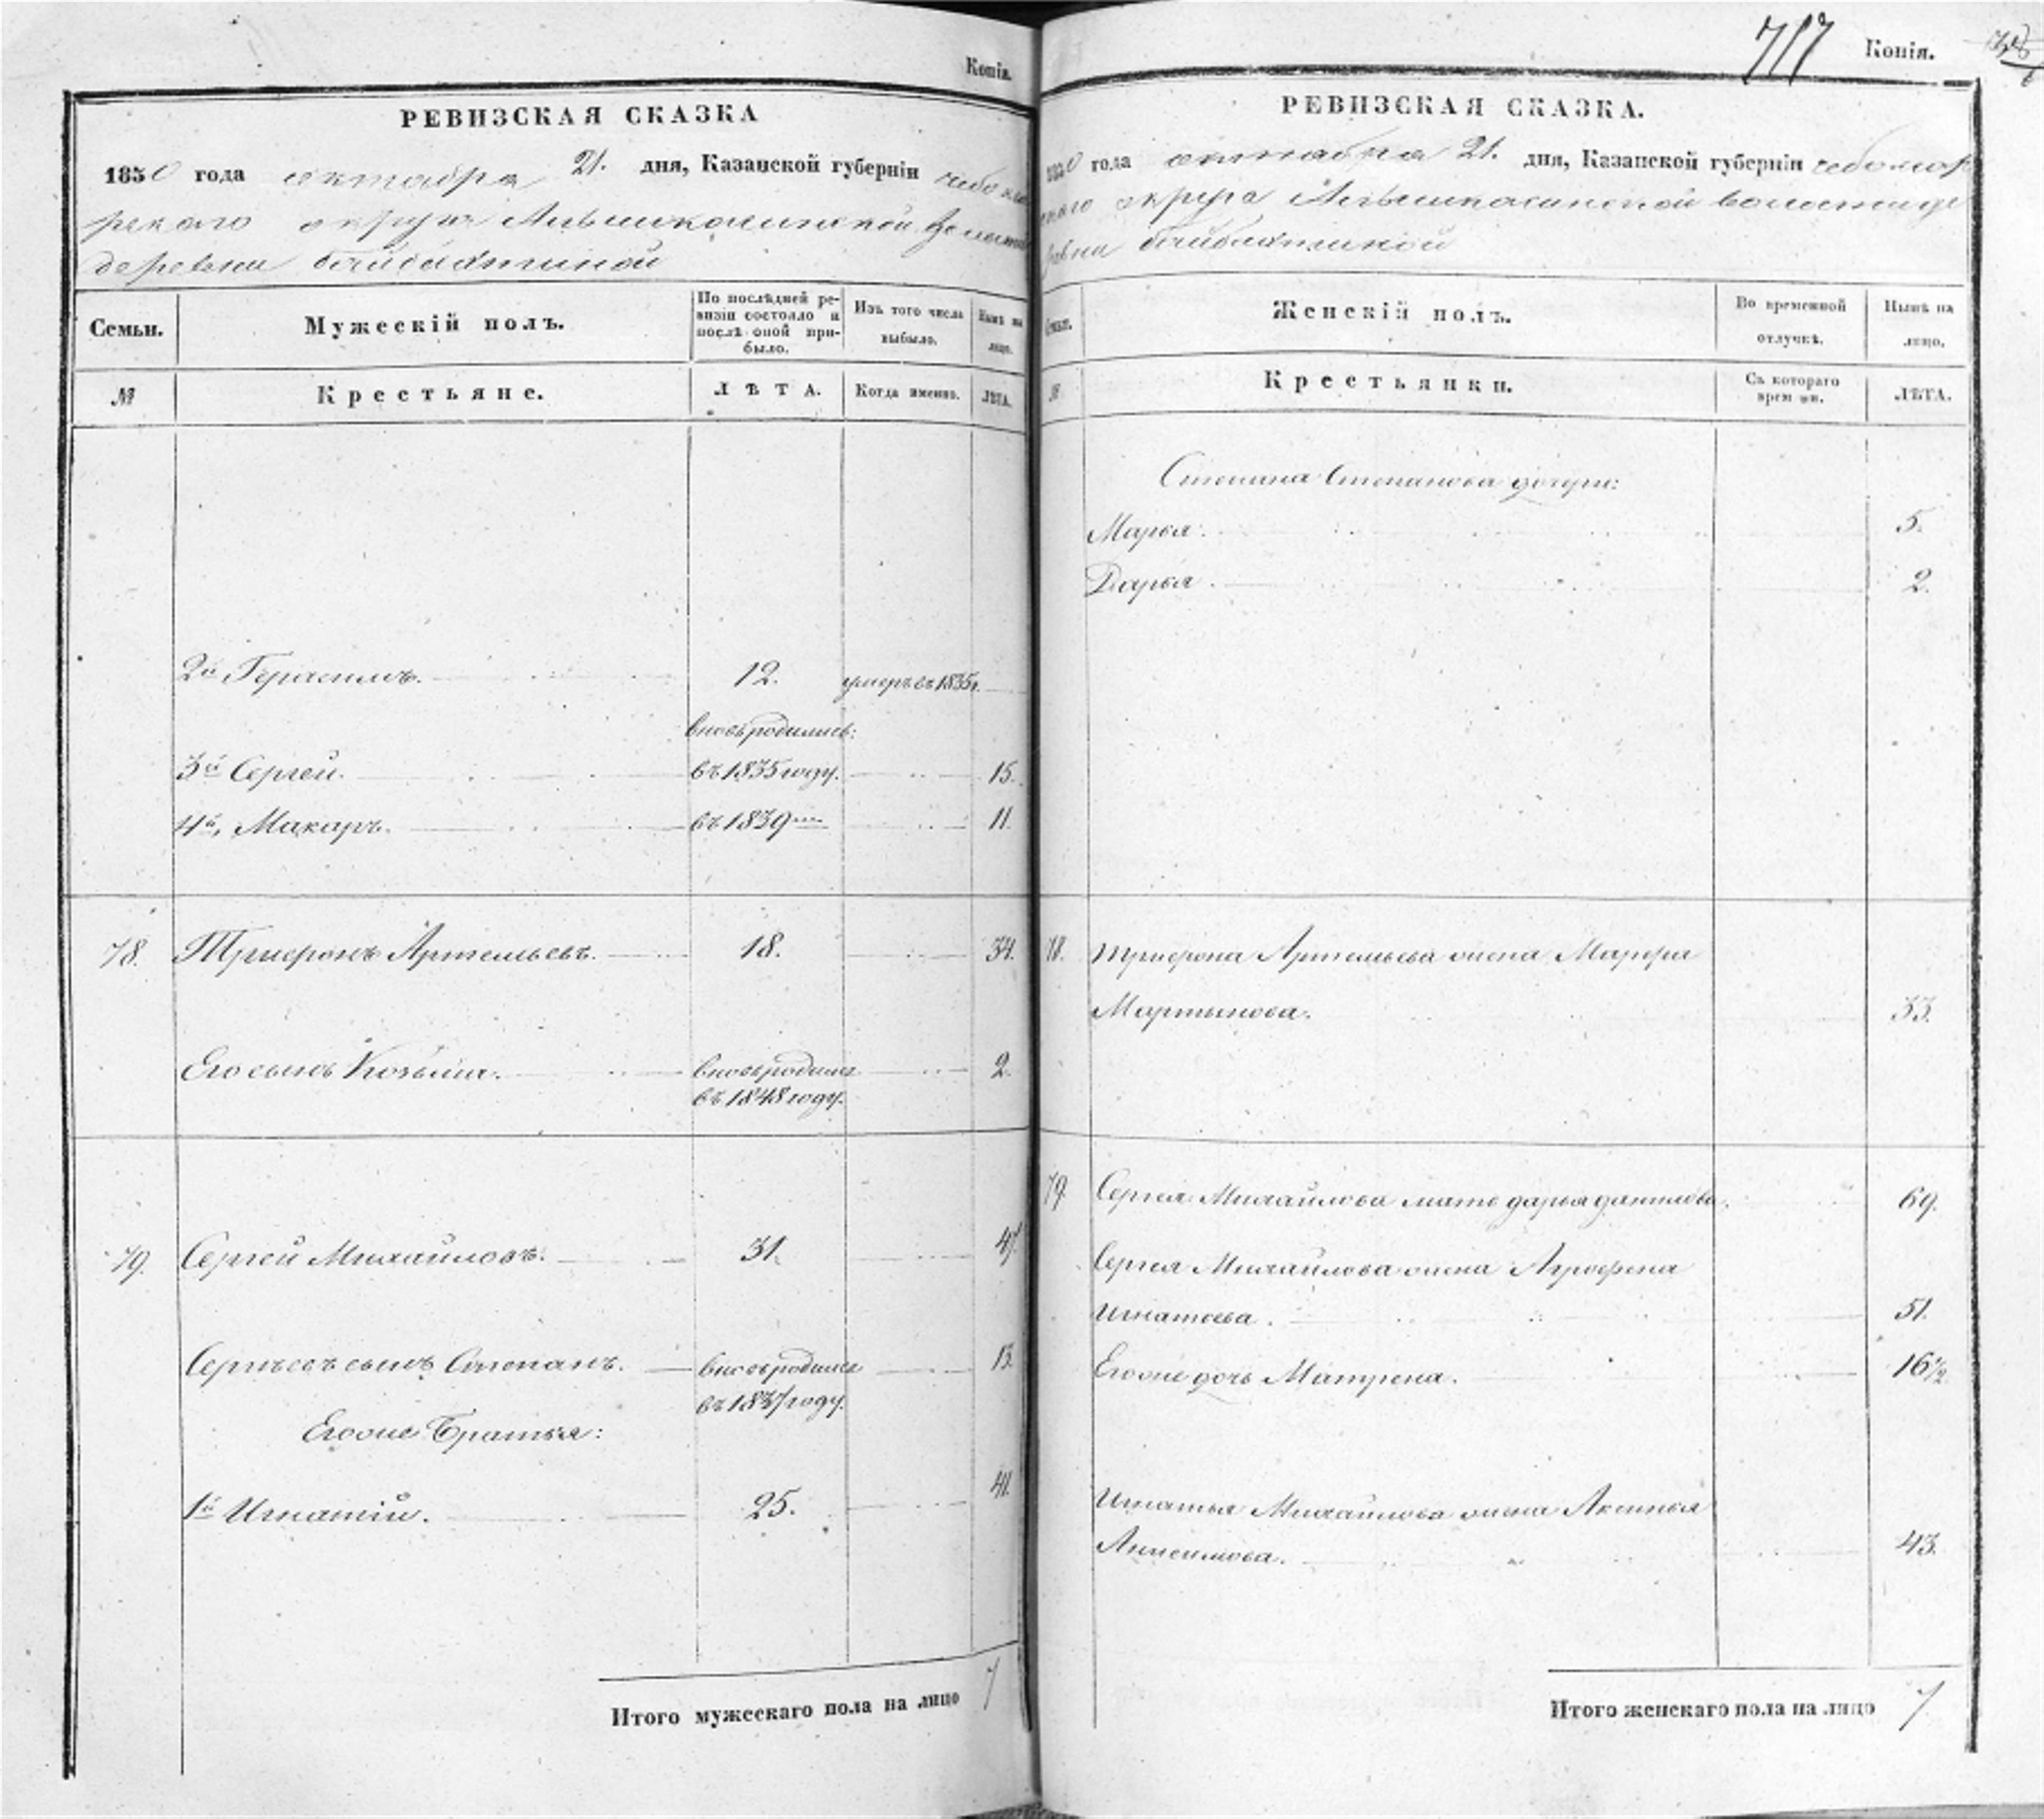 Копія.
РЕВИЗСКАЯ СКАЗКА
1850 года октября 21. дня, Казанской губерніи чебокса
рскаго округа волости
деревни байбахтиной
Семьи.
Мужескій полъ.
По послѣдней ре-
визіи состояло и
послѣ оной при-
было.
Изъ того числа
выбыло.
Нынѣ на
лицо.
№
Крестьяне.
ЛѢТА.
Когда именно.
ЛѢТА.
2й Герасимъ. 12. умеръ въ 1835г.
вновь родились:
3й Сергей. въ 1835 году. 15.
4й, Макаръ. въ 1839 11.
78. Трифонъ Артемьевъ. 18. 34.
Его сынъ Козьма. вновь родился 2.
въ 1848 году.
79. Сергей Михайловъ. 31. 47.
Сергѣевъ сынъ Степанъ. вновь родился 13.
въ 1837 году.
Егоже Братья:
1й Игнатій. 25. 41.
Итого мужескаго пола на лицо 7
717
Копія.
РЕВИЗСКАЯ СКАЗКА.
1850 года октября 21. дня, Казанской губерніи чебоксар
скаго округа волости де
ревни байбахтиной
Семьи.
Женскій полъ.
Во временной
отлучкѣ.
Нынѣ на
лицо.
№
Крестьянки.
Съ котораго
времени.
ЛѢТА.
Степана Степанова дочери:
Марья. 5.
Дарья. 2.
78. Трифона Артемьева жена Марфа
Мартынова. 33.
79. Сергея Михайлова мать дарья данилова. 69.
Сергея Михайлова жена Агрофена
Игнатьева. 51.
Егоже дочь Матрена. 16½
Игнатья Михайлова жена Аксинья
Анисимова. 43.
Итого женскаго пола на лицо 7